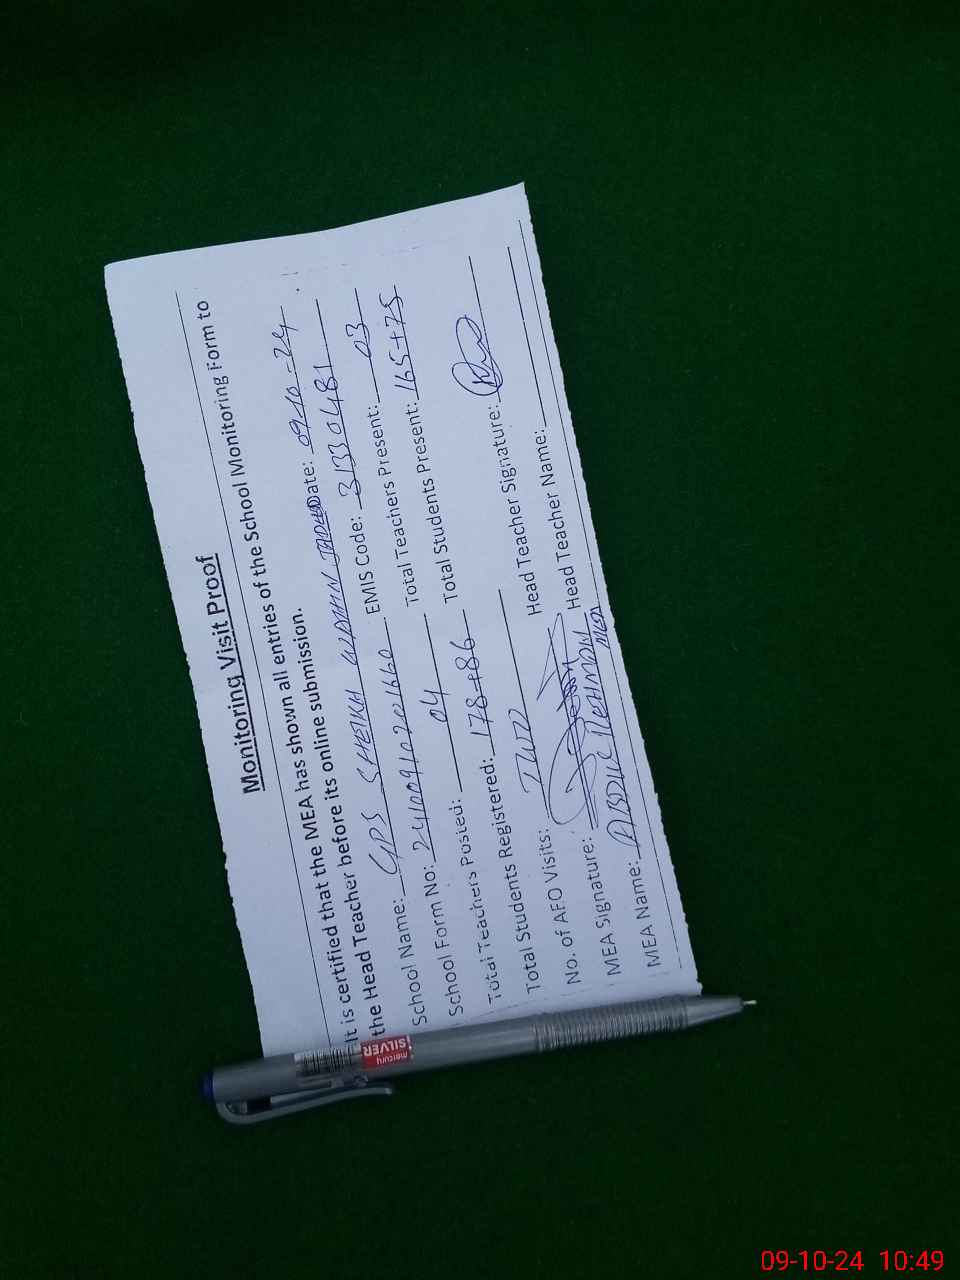 Monitoring Visit Proof
It is certified that the MEA has shown all entries of the School Monitoring Form to
the Head Teacher before its online submission.
School Name: GPS SHEIKH WAHAN Date: 09-10-24
School Form No: 241009102701660 EMIS Code: 31330481
Total Teachers Posted: 04 Total Teachers Present: 03
Total Students Registered: 178+86 Total Students Present: 165+75
No. of AEO Visits: TWO
MEA Signature: Head Teacher Signature:
MEA Name: ABDUL REHMAN MEA Head Teacher Name:
mercury
SILVER
09-10-24 10:49